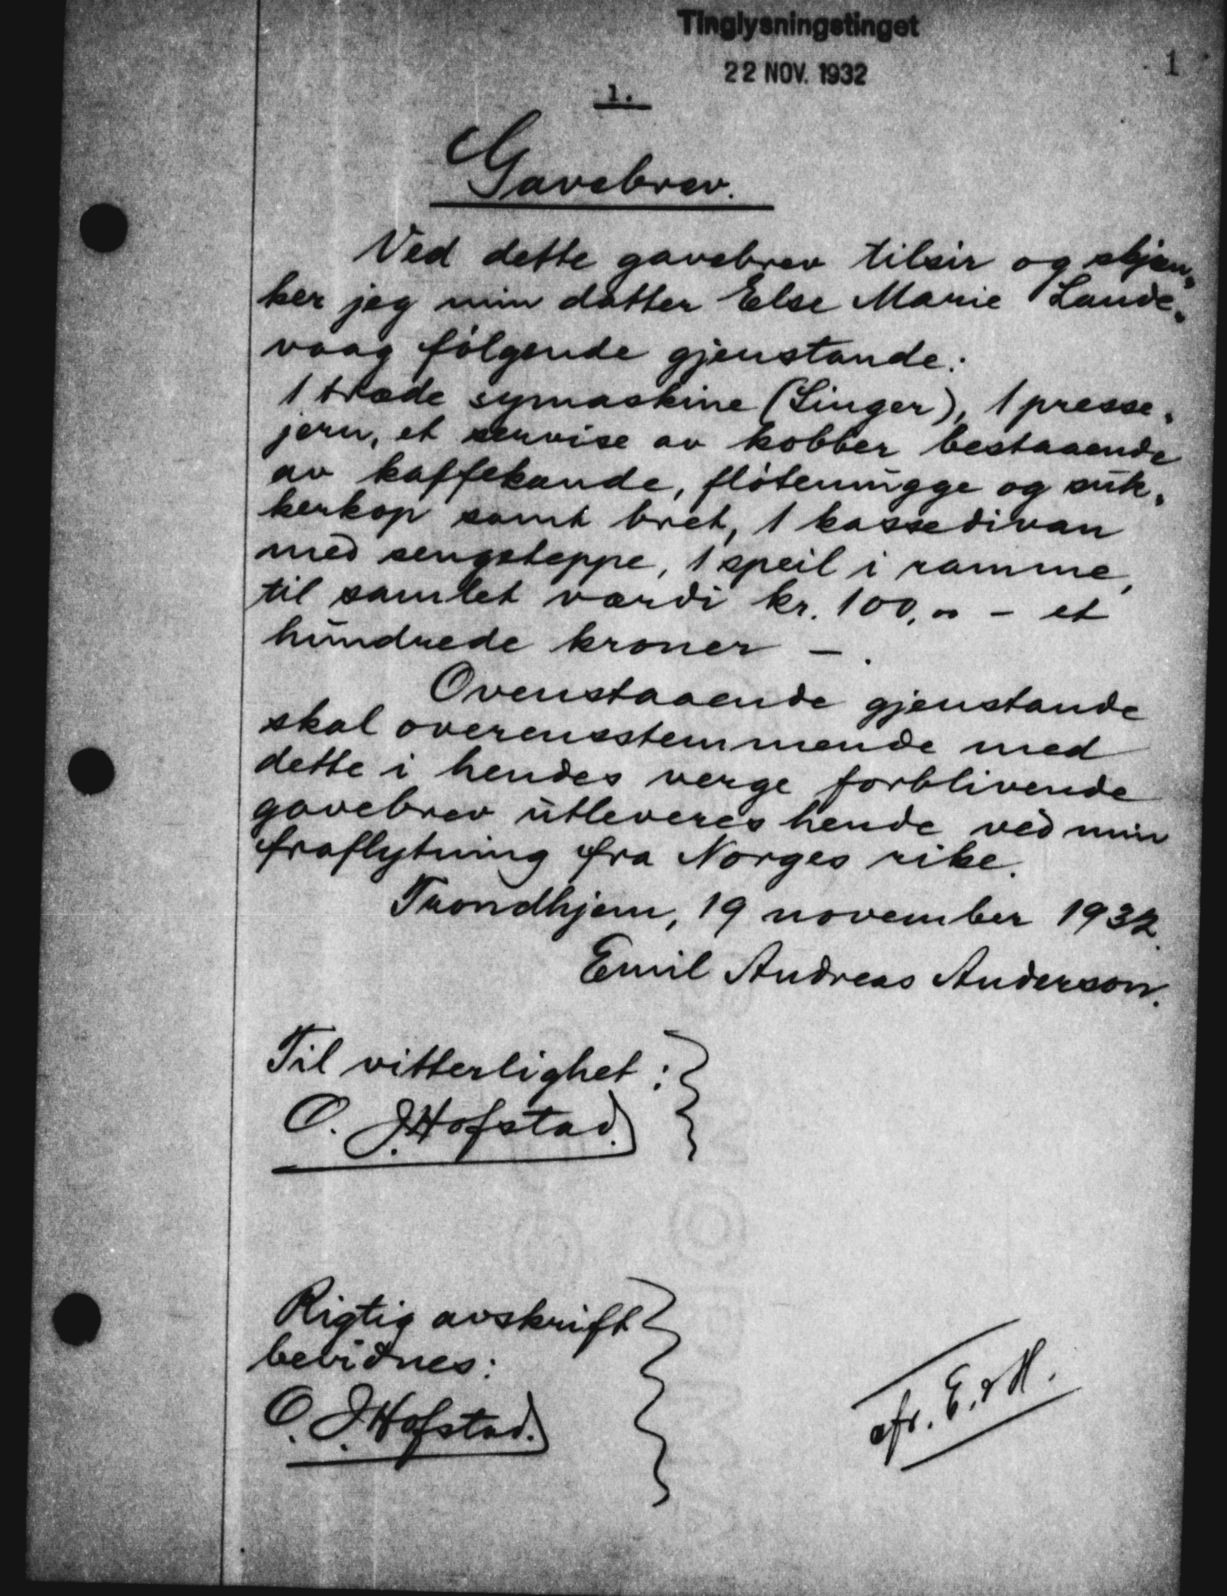 Tinglysningstinget
22 NOV. 1932
1
1.
Gavebrev.
Ved dette gavebrev tilsir og skjæn-
ker jeg min datter Else Marie Lande-
vaag følgende gjenstande:
1 træde symaskine (Singer), 1 presse-
jern, et servise av kobber bestaaende
av kaffekande, fløtemugge og suk-
kerkop samt bret, 1 kassedivan
med sengeteppe, 1 speil i ramme,
til samlet værdi kr. 100,00 - et
hundrede kroner -.
Ovenstaaende gjenstande
skal overensstemmende med
dette i hendes verge forblivende
gavebrev utleveres hende ved min
fraflytning fra Norges rike.
Trondhjem, 19 november 1932.
Emil Andreas Anderson.
Til vitterlighet:
O. J. Hofstad.
Rigtig avskrift
bevidnes:
O. J. Hofstad.